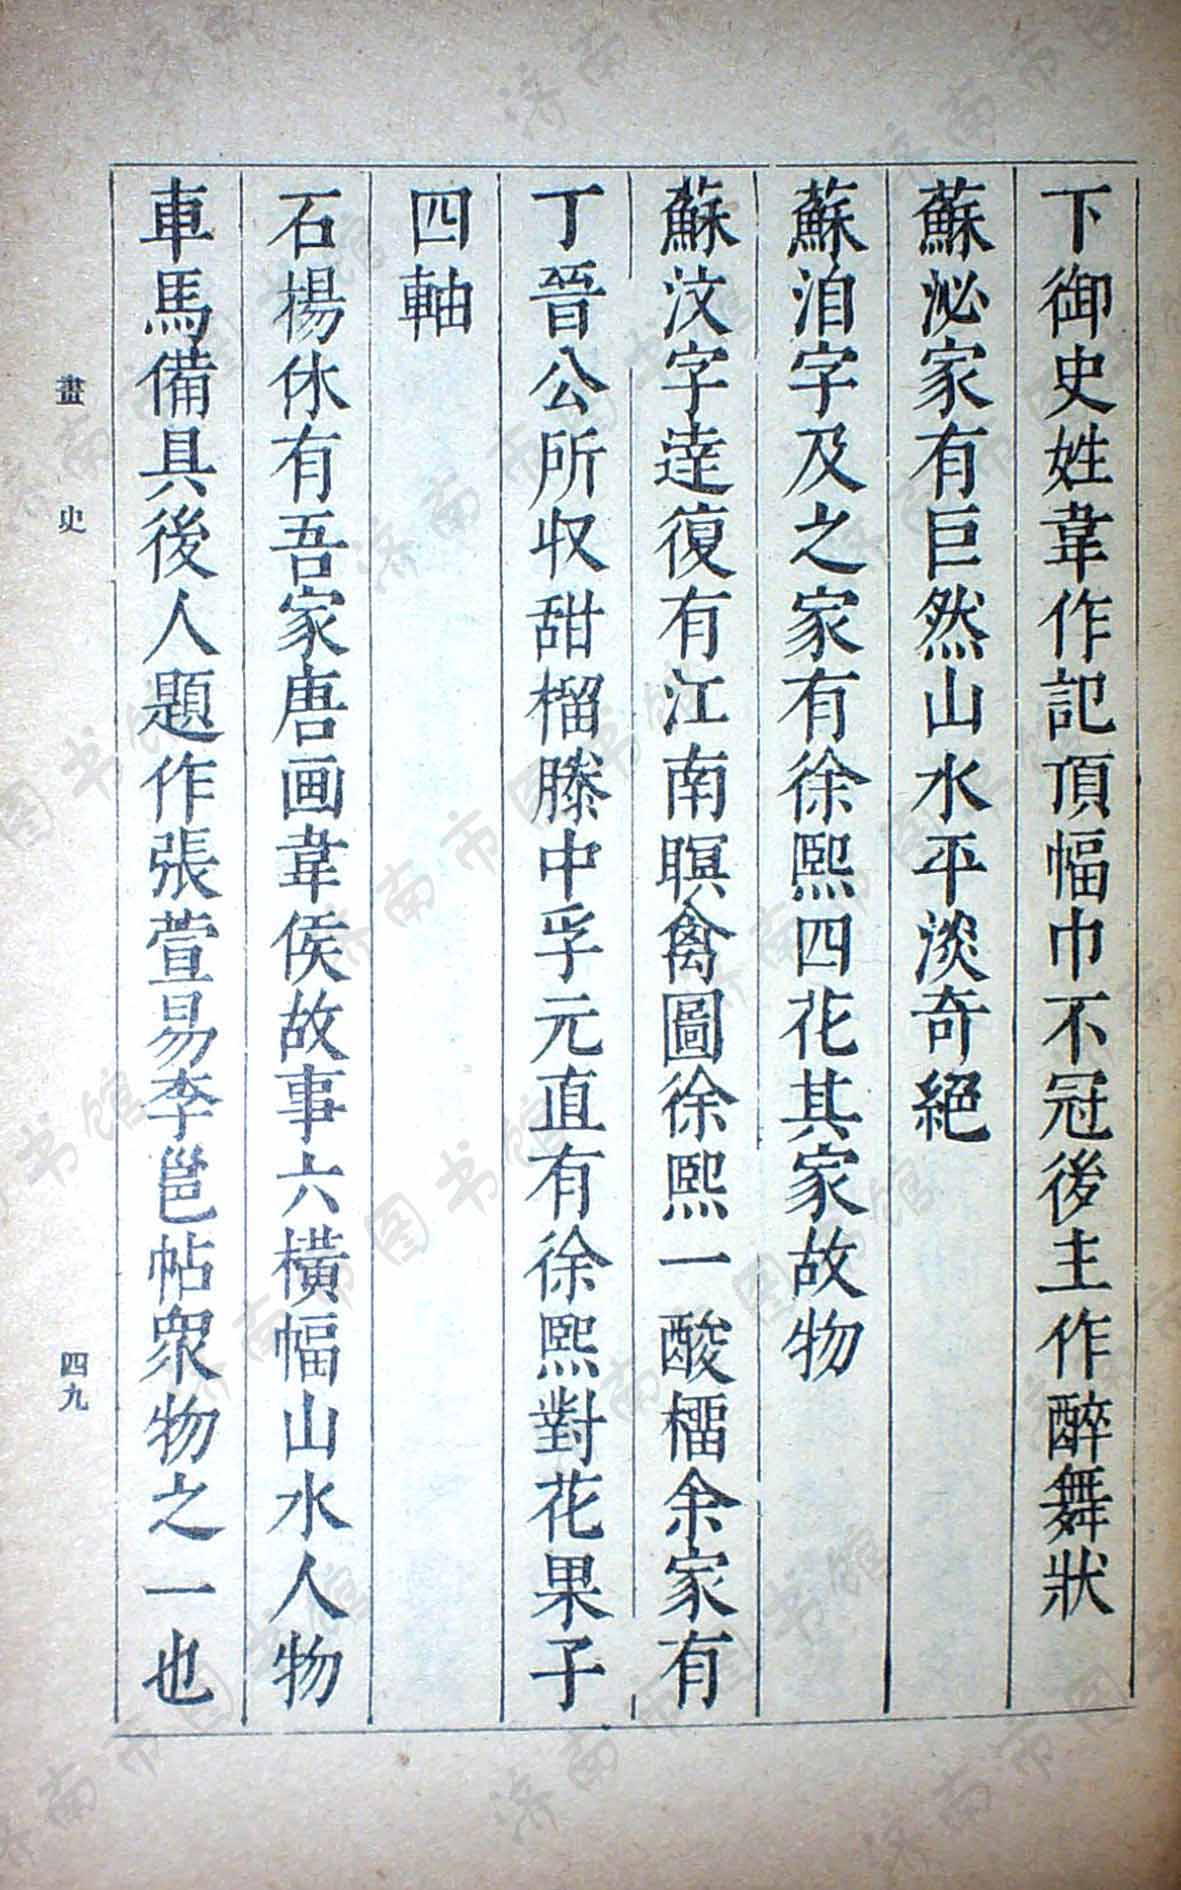 下御史姓韋作記頂幅巾不冠後主作醉舞狀
蘇泌家有巨然山水平淡奇絕
蘇洎字及之家有徐熙四花其家故物
蘇汶字達復有江南暝禽圖徐熙一酸橊余家有
丁晉公所収甜榴滕中孚元直有徐熙對花果子
四軸
石楊休有吾家唐画韋侯故事六橫幅山水人物
車馬備具後人題作張萱易李邕帖衆物之一也
畫史
四九
济南市图书馆